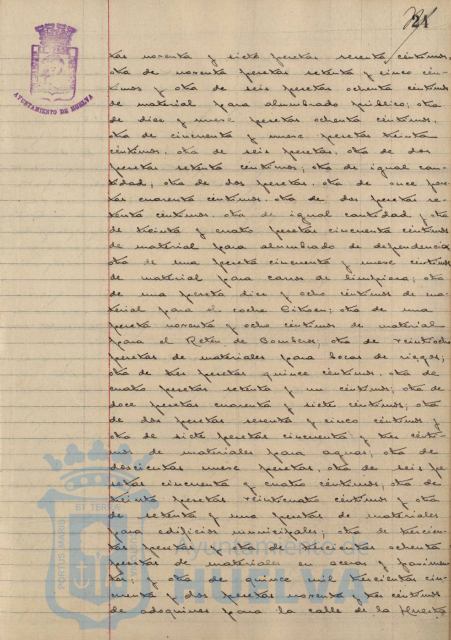 21
AYUNTAMIENTO DE HUELVA
tas noventa y siete pesetas sesenta céntimos,
otra de noventa pesetas setenta y cinco cén-
timos y otra de seis pesetas ochenta céntimos
de material para alumbrado público; otra
de diez y nueve pesetas ochenta céntimos.
otra de cincuenta y nueve pesetas treinta
céntimos. otra de seis pesetas, otra de dos
pesetas setenta céntimos; otra de igual can-
tidad; otra de dos pesetas. otra de once pese-
tas cuarenta céntimos. otra de dos pesetas se-
tenta céntimos. otra de igual cantidad y otra
de treinta y cuatro pesetas cincuenta céntimos
de material para alumbrado de dependencia
otra de una peseta cincuenta y nueve céntimos
de material para carros de limpieza; otra
de una peseta diez y ocho céntimos de ma-
terial para el coche Citroen; otra de una
peseta noventa y ocho céntimos de material
para el Retén de Bomberos; otra de veintiocho
pesetas de materiales para bocas de riegos;
otra de tres pesetas quince céntimos. otra de
cuatro pesetas setenta y un céntimos; otra de
doce pesetas cuarenta y siete céntimos; otra
de dos pesetas sesenta y cinco céntimos y
otra de siete pesetas cincuenta y tres cénti-
mos de materiales para aguas; otra de
doscientas nueve pesetas, otra de seis pe-
setas cincuenta y cuatro céntimos; otra de
treinta pesetas veinticuatro céntimos y otra
de setenta y una pesetas de materiales
para edificios municipales; otra de trescien-
tas pesetas y otra de ochenta
pesetas de materiales en aceras y pavimen-
tos; y otra de quince mil trescientas cin-
cuenta y dos pesetas noventa y tres céntimos
de adoquines para la calle de la Nuestra
PORTUS MARIS ET TERRAE
Ayuntamiento de
HUELVA